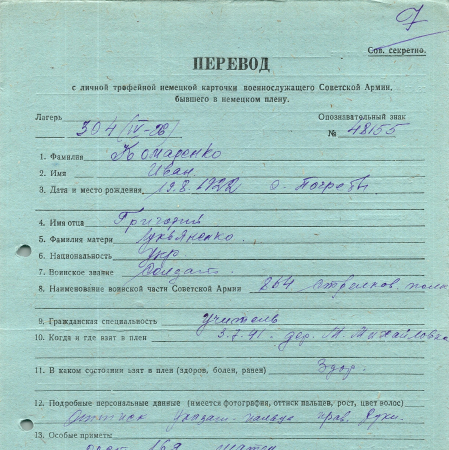 7
Сов. секретно.
ПЕРЕВОД
с личной трофейной немецкой карточки военнослужащего Советской Армии,
бывшего в немецком плену.
Лагерь Опознавательный знак
304 (IV-ОВ) № 48155
1. Фамилия Комаренко
2. Имя Иван
3. Дата и место рождения 19.8.1922 о. Погребы
4. Имя отца Григорий
5. Фамилия матери Лукьяненко
6. Национальность Укр
7. Воинское звание Солдат
8. Наименование воинской части Советской Армии 264 стрелков. полк
9. Гражданская специальность учитель
10. Когда и где взят в плен 5.7.41. дер. М. Михайловка
11. В каком состоянии взят в плен (здоров, болен, ранен) Здор.
12. Подробные персональные данные (имеется фотография, оттиск пальцев, рост, цвет волос)
Оттиск указат. пальца прав. руки.
13. Особые приметы
рост 169